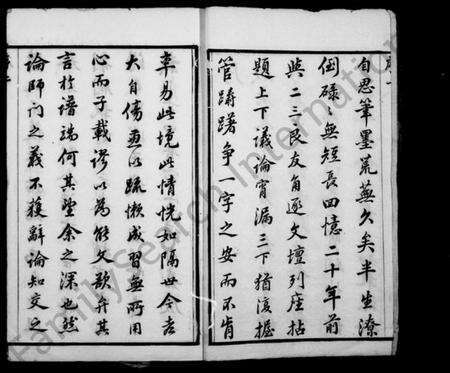 自思筆墨荒蕪久矣半生潦
倒碌々無短長回憶二十年前
與二三良友角逐文壇列座拈
題上下議論宵漏三下猶復握
管躊躇爭一字之安而不肯
率易此境此情恍如隔世今老
大自傷更以疏懶成習無所用
心而子載謬以為能文歟弁其
言於譜端何其望余之深也然
論師門之義不獲辭論知交之
FamilySearch International